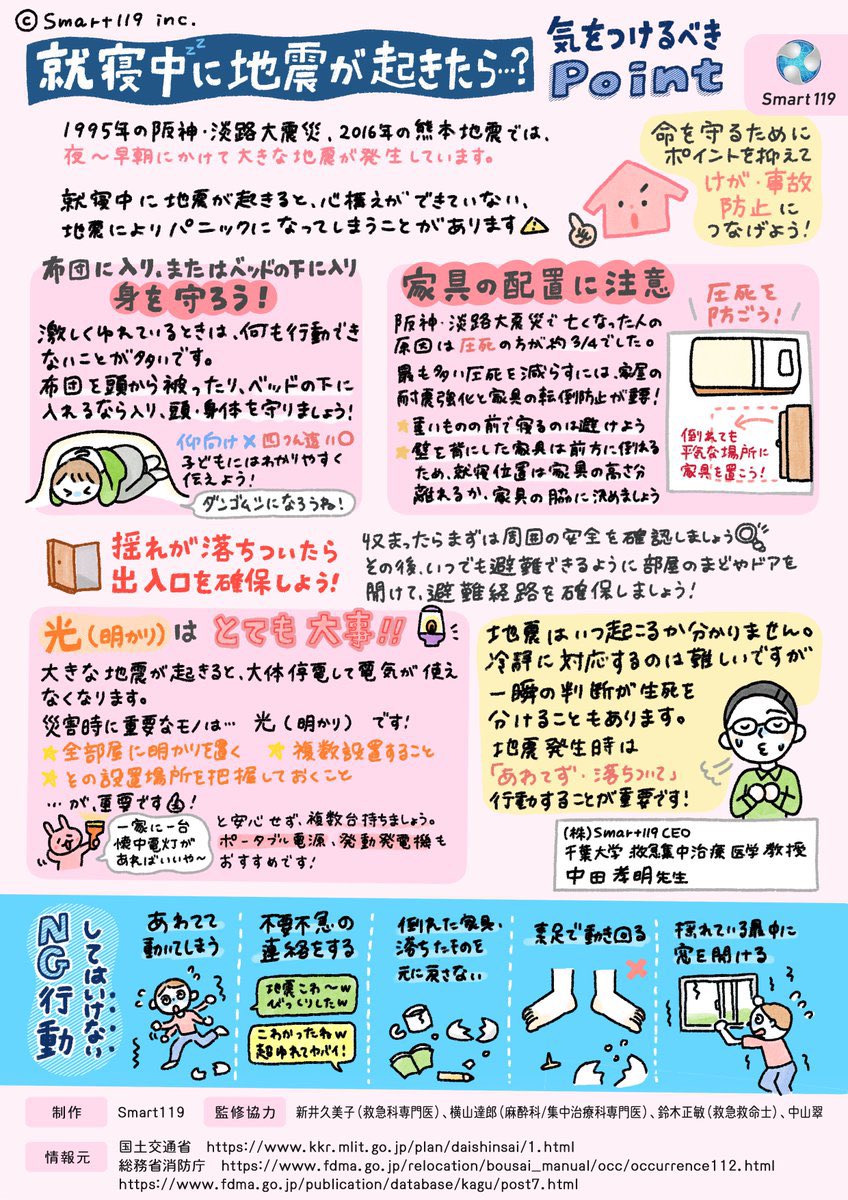 © Smart119 inc.
就寝中に地震が起きたら…?
zz
気をつけるべき
Point
Smart119
1995年の阪神・淡路大震災、2016年の熊本地震では、
夜～早朝にかけて大きな地震が発生しています。
就寝中に地震が起きると、心構えができていない、
地震によりパニックになってしまうことがあります
命を守るために
ポイントを抑えて
けが・事故
防止に
つなげよう!
布団に入り、またはベッドの下に入り
身を守ろう!
激しくゆれているときは、何も行動でき
ないことが多いです。
布団を頭から被ったり、ベッドの下に
入れるなら入り、頭・身体を守りましょう!
仰向け× 四つん這い○
子どもにはわかりやすく
伝えよう!
ダンゴムシになろうね!
家具の配置に注意
阪神・淡路大震災で亡くなった人の
原因は圧死の方が約3/4でした。
最も多い圧死を減らすには、家屋の
耐震強化と家具の転倒防止が重要!
★重いものの前で寝るのは避けよう
★壁を背にした家具は前方に倒れる
ため、就寝位置は家具の高さ分
離れるか、家具の脇に決めましょう
圧死を
防ごう!
倒れても
平気な場所に
家具を置こう!
揺れが落ちついたら
出入口を確保しよう!
収まったらまずは周囲の安全を確認しましょう
その後、いつでも避難できるように部屋のまどやドアを
開けて、避難経路を確保しましょう!
光(明かり)は とても大事!!
大きな地震が起きると、大体停電して電気が使え
なくなります。
災害時に重要なモノは… 光(明かり)です!
★全部屋に明かりを置く ★複数設置すること
★その設置場所を把握しておくこと
…が、重要です!
一家に一台
懐中電灯が
あればいいや～
と安心せず、複数台持ちましょう。
ポータブル電源、発動発電機も
おすすめです!
地震はいつ起こるか分かりません。
冷静に対応するのは難しいですが
一瞬の判断が生死を
分けることもあります。
地震発生時は
「あわてず・落ちついて」
行動することが重要です!
(株)Smart119 CEO
千葉大学 救急集中治療医学教授
中田孝明先生
してはいけない
NG行動
あわてて
動いてしまう
不要不急の
連絡をする
地震こわ～w
びっくりしたw
こわかったねw
超ゆれてヤバイ!
倒れた家具、
落ちたものを
元に戻さない
素足で動き回る
揺れている最中に
窓を開ける
制作 Smart119 監修協力 新井久美子(救急科専門医)、横山達郎(麻酔科/集中治療科専門医)、鈴木正敏(救急救命士)、中山翠
情報元
国土交通省 https://www.kkr.mlit.go.jp/plan/daishinsai/1.html
総務省消防庁 https://www.fdma.go.jp/relocation/bousai_manual/occ/occurrence112.html
https://www.fdma.go.jp/publication/database/kagu/post7.html